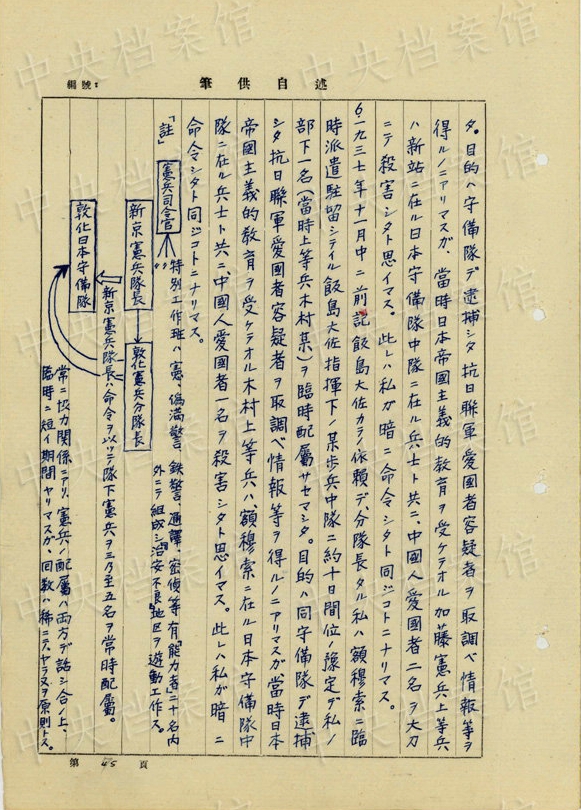 筆供自述
編號:
タ。目的ハ守備隊デ逮捕シタ抗日聯軍愛國者容疑者ヲ取調ベ情報等ヲ
得ルノニアリマスガ、當時日本帝國主義的教育ヲ受ケテオル加藤憲兵上等兵
ハ新站ニ在ル日本守備隊中隊ニ在ル兵士ト共ニ、中國人愛國者二名ヲ大刀
ニテ殺害シタト思イマス。此レハ私ガ暗ニ命令シタト同ジコトニナリマス。
6.一九三七年十一月中ニ前記飯島大佐カラノ依賴デ、分隊長タル私ハ額穆索ニ臨
時派遣駐留シテイル飯島大佐指揮下ノ某步兵中隊ニ約十日間位ノ豫定デ私ノ
部下一名(當時上等兵木村某)ヲ臨時配屬サセマシタ。目的ハ同守備隊デ逮捕
シタ抗日聯軍愛國者容疑者ヲ取調ベ情報等ヲ得ルノニアリマスガ當時日本
帝國主義的教育ヲ受ケテオル木村上等兵ハ、額穆索ニ在ル日本守備隊中
隊ニ在ル兵士ト共ニ、中國人愛國者一名ヲ殺害シタト思イマス。此レハ私ガ暗ニ
命令シタト同ジコトニナリマス。
「註」
憲兵司令官
特別工作班ハ憲、偽滿警、鉄警、通譯、密偵等有能力者二十名内
外ニテ組成シ治安不良地区ヲ遊動工作ス。
新京憲兵隊長
敦化憲兵分隊長
新京憲兵隊長ハ命令ヲ以ッテ隊下憲兵ヲ三乃至五名ヲ常時配屬。
敦化日本守備隊
常ニ協力関係ニアリ、憲兵ノ配屬ハ両方デ話シ合ノ上、
臨時ニ短イ期間ヤリマスガ、回数ハ稀ニテヤラヌヲ原則トス。
第 45 頁
中央档案馆